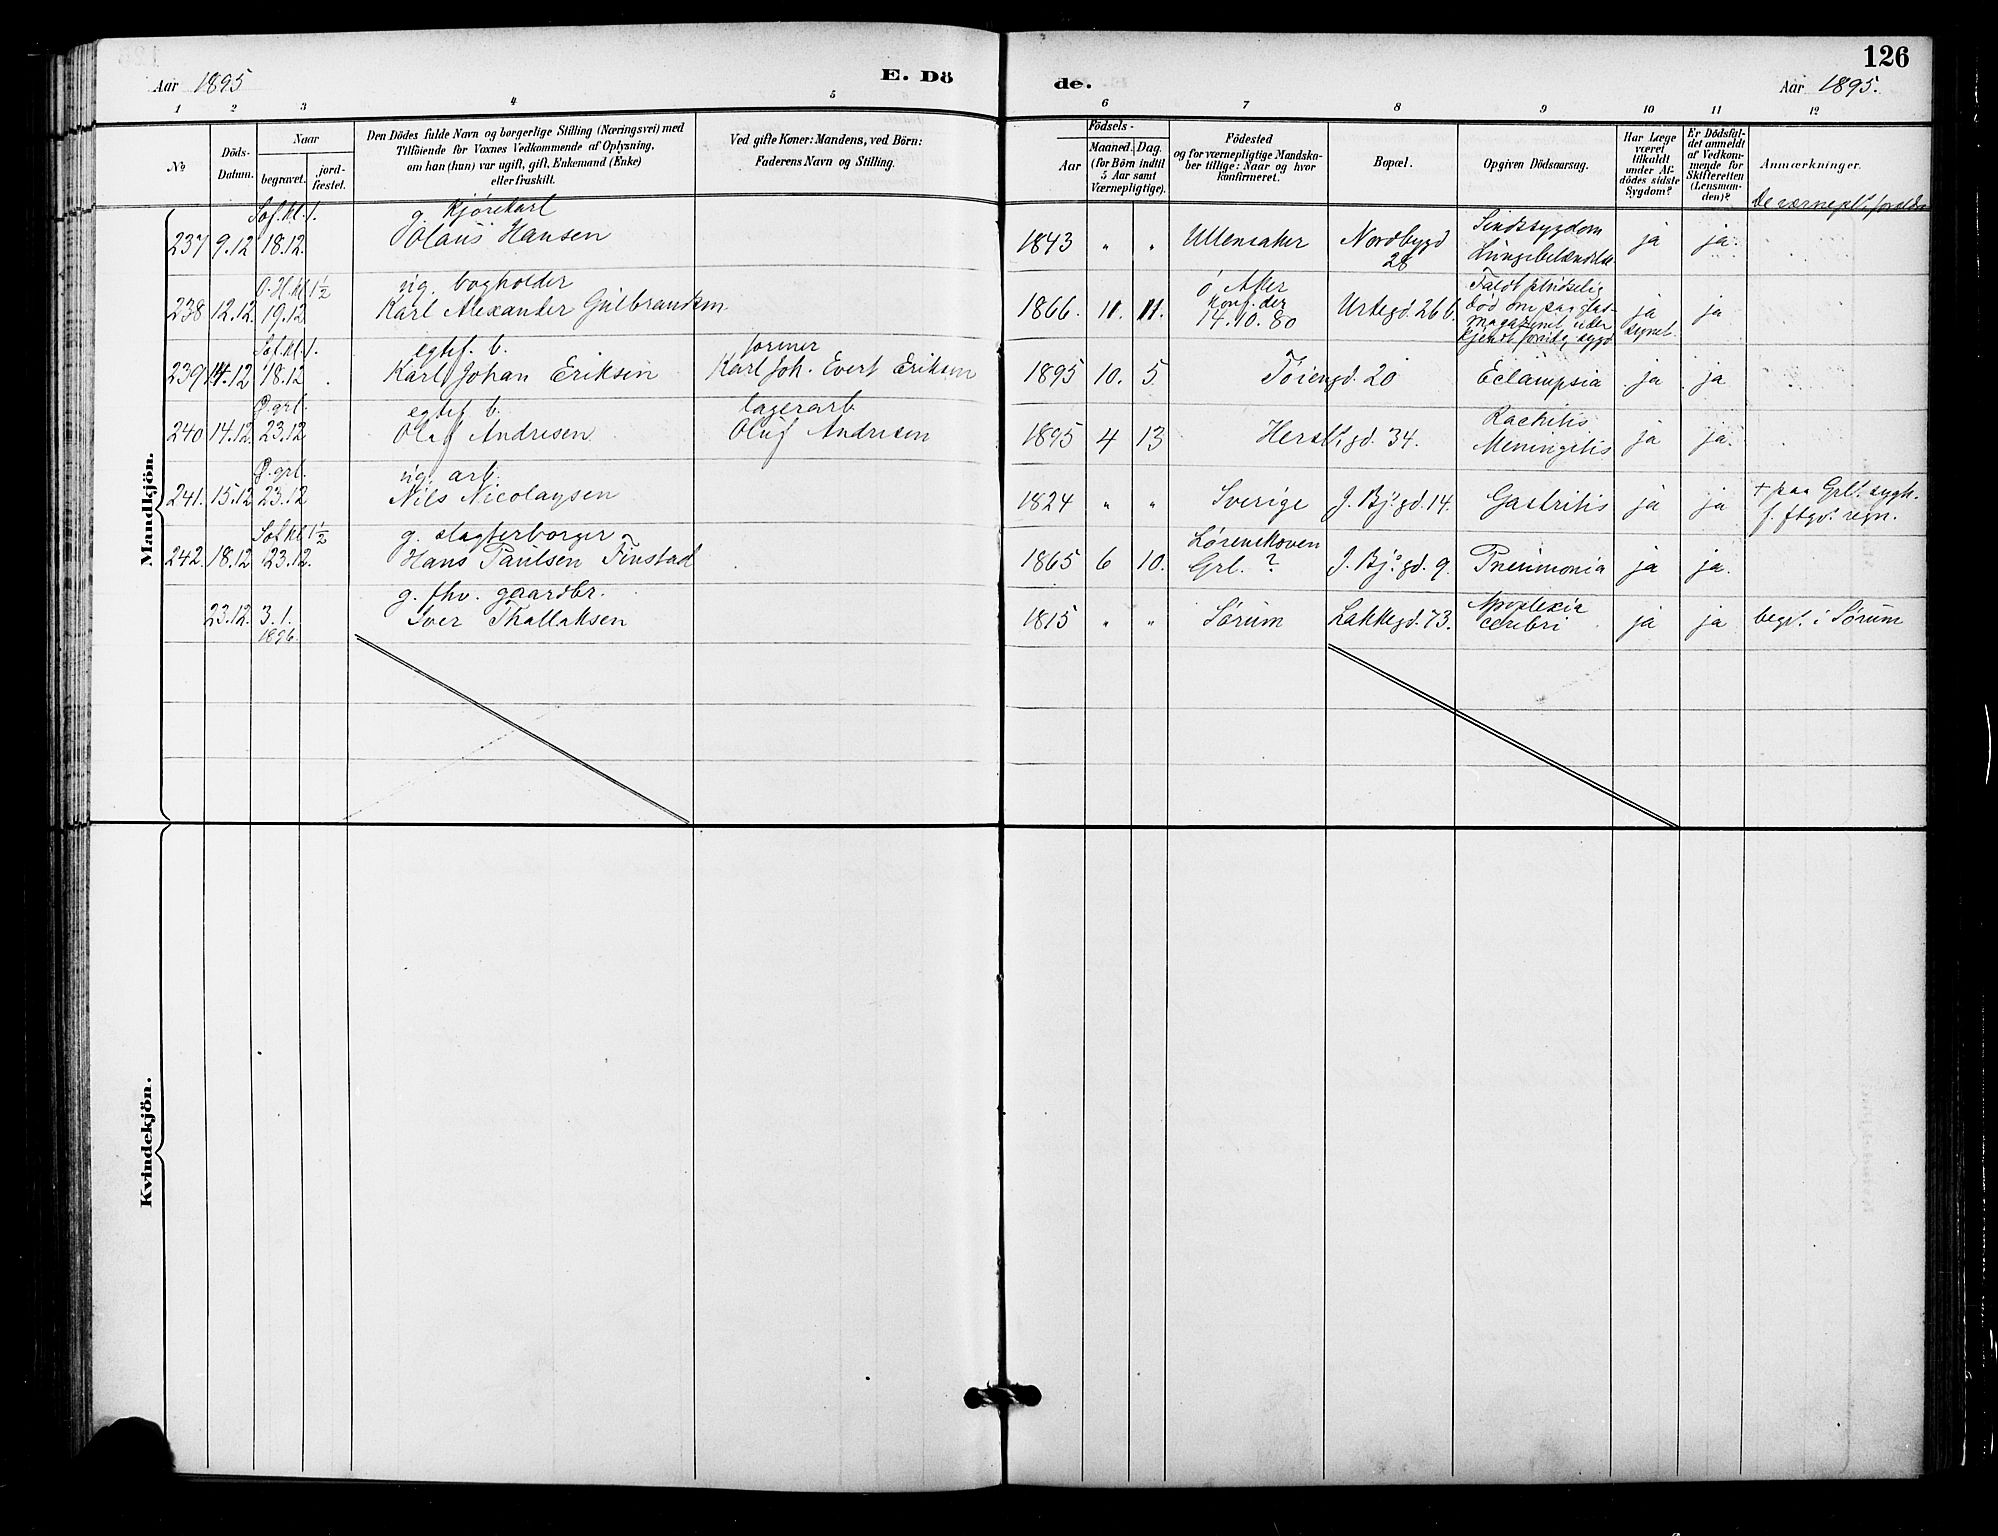 126
Aar 1895
E. Dö
de.
Aar 1895.
1 2 3 4 5 6 7 8 9 10 11 12
No
Döds-Datum.
Naar
begravet.
jord-fæstet.
Den Dödes fulde Navn og borgerlige Stilling (Næringsvei) med
Tilföiende for Voxnes Vedkommende af Oplysning,
om han (hun) var ugift, gift, Enkemand (Enke)
eller fraskilt.
Ved gifte Koner: Mandens, ved Börn:
Faderens Navn og Stilling.
Födsels-
Aar
Maaned. Dag.
(for Börn indtil
5 Aar samt
Værnepligtige).
Födested
og for værnepligtige Mandska-
ber tillige: Naar og hvor
konfirmeret.
Bopæl.
Opgiven Dödsaarsag.
Har Læge
været
tilkaldt
under Af-
dödes sidste
Sygdom?
Er Dödsfal-
det anmeldt
af Vedkom-
mende for
Skifteretten
(Lensman-
den)?
Anmærkninger.
Mandkjön.
Sof. kl. 1. g. kjørekarl Sindssygdom
237 9.12 18.12. Olaus Hansen 1843 " " Ullensaker Nordbygd 28 Lungebetændelse ja ja.
O.H. kl 1½ ug. bogholder
238 12.12. 19.12. Karl Alexander Gulbrandsen 1866. 11. 11. ø. Aker
konf. der
14.10.80 Urtegd. 26 b. Faldt pludselig
død om paa glas-
magazinet
ja
synet. ja
Sof. kl. 1. egtef. b. former
239 14.12 18.12 Karl Johan Eriksen Karl Joh. Evert Eriksen 1895 10. 5. Tøiengd. 20 Eclampsia ja ja
Ø. grl. egtef. b. lagerarb. Rachitis
240 14.12. 23.12 Olaf Andresen Oluf Andresen 1895 4 13 Herslt. gd. 34. Meningitis ja ja.
Ø. grl. ug. arb.
241. 15.12 23.12 Nils Nicolaysen 1824 " " Sverige J. Bj. gd. 14. Gastritis ja ja + paa Grl. sygh.
f. ftgv. regn.
Sof. kl 1½ g. slagterborger Lørenskoven
242. 18.12 23.12. Hans Paulsen Finstad 1865 6 10. Grl. ? J. Bj. gd. 9. Pneumonia ja ja.
g. fhv. gaardbr. Apoplexia
23.12. 3.1.
1896. Iver Thallaksen 1815 " " Sørum Lakkegd. 73. cerebri ja ja begr. i Sørum
Kvindekjön.